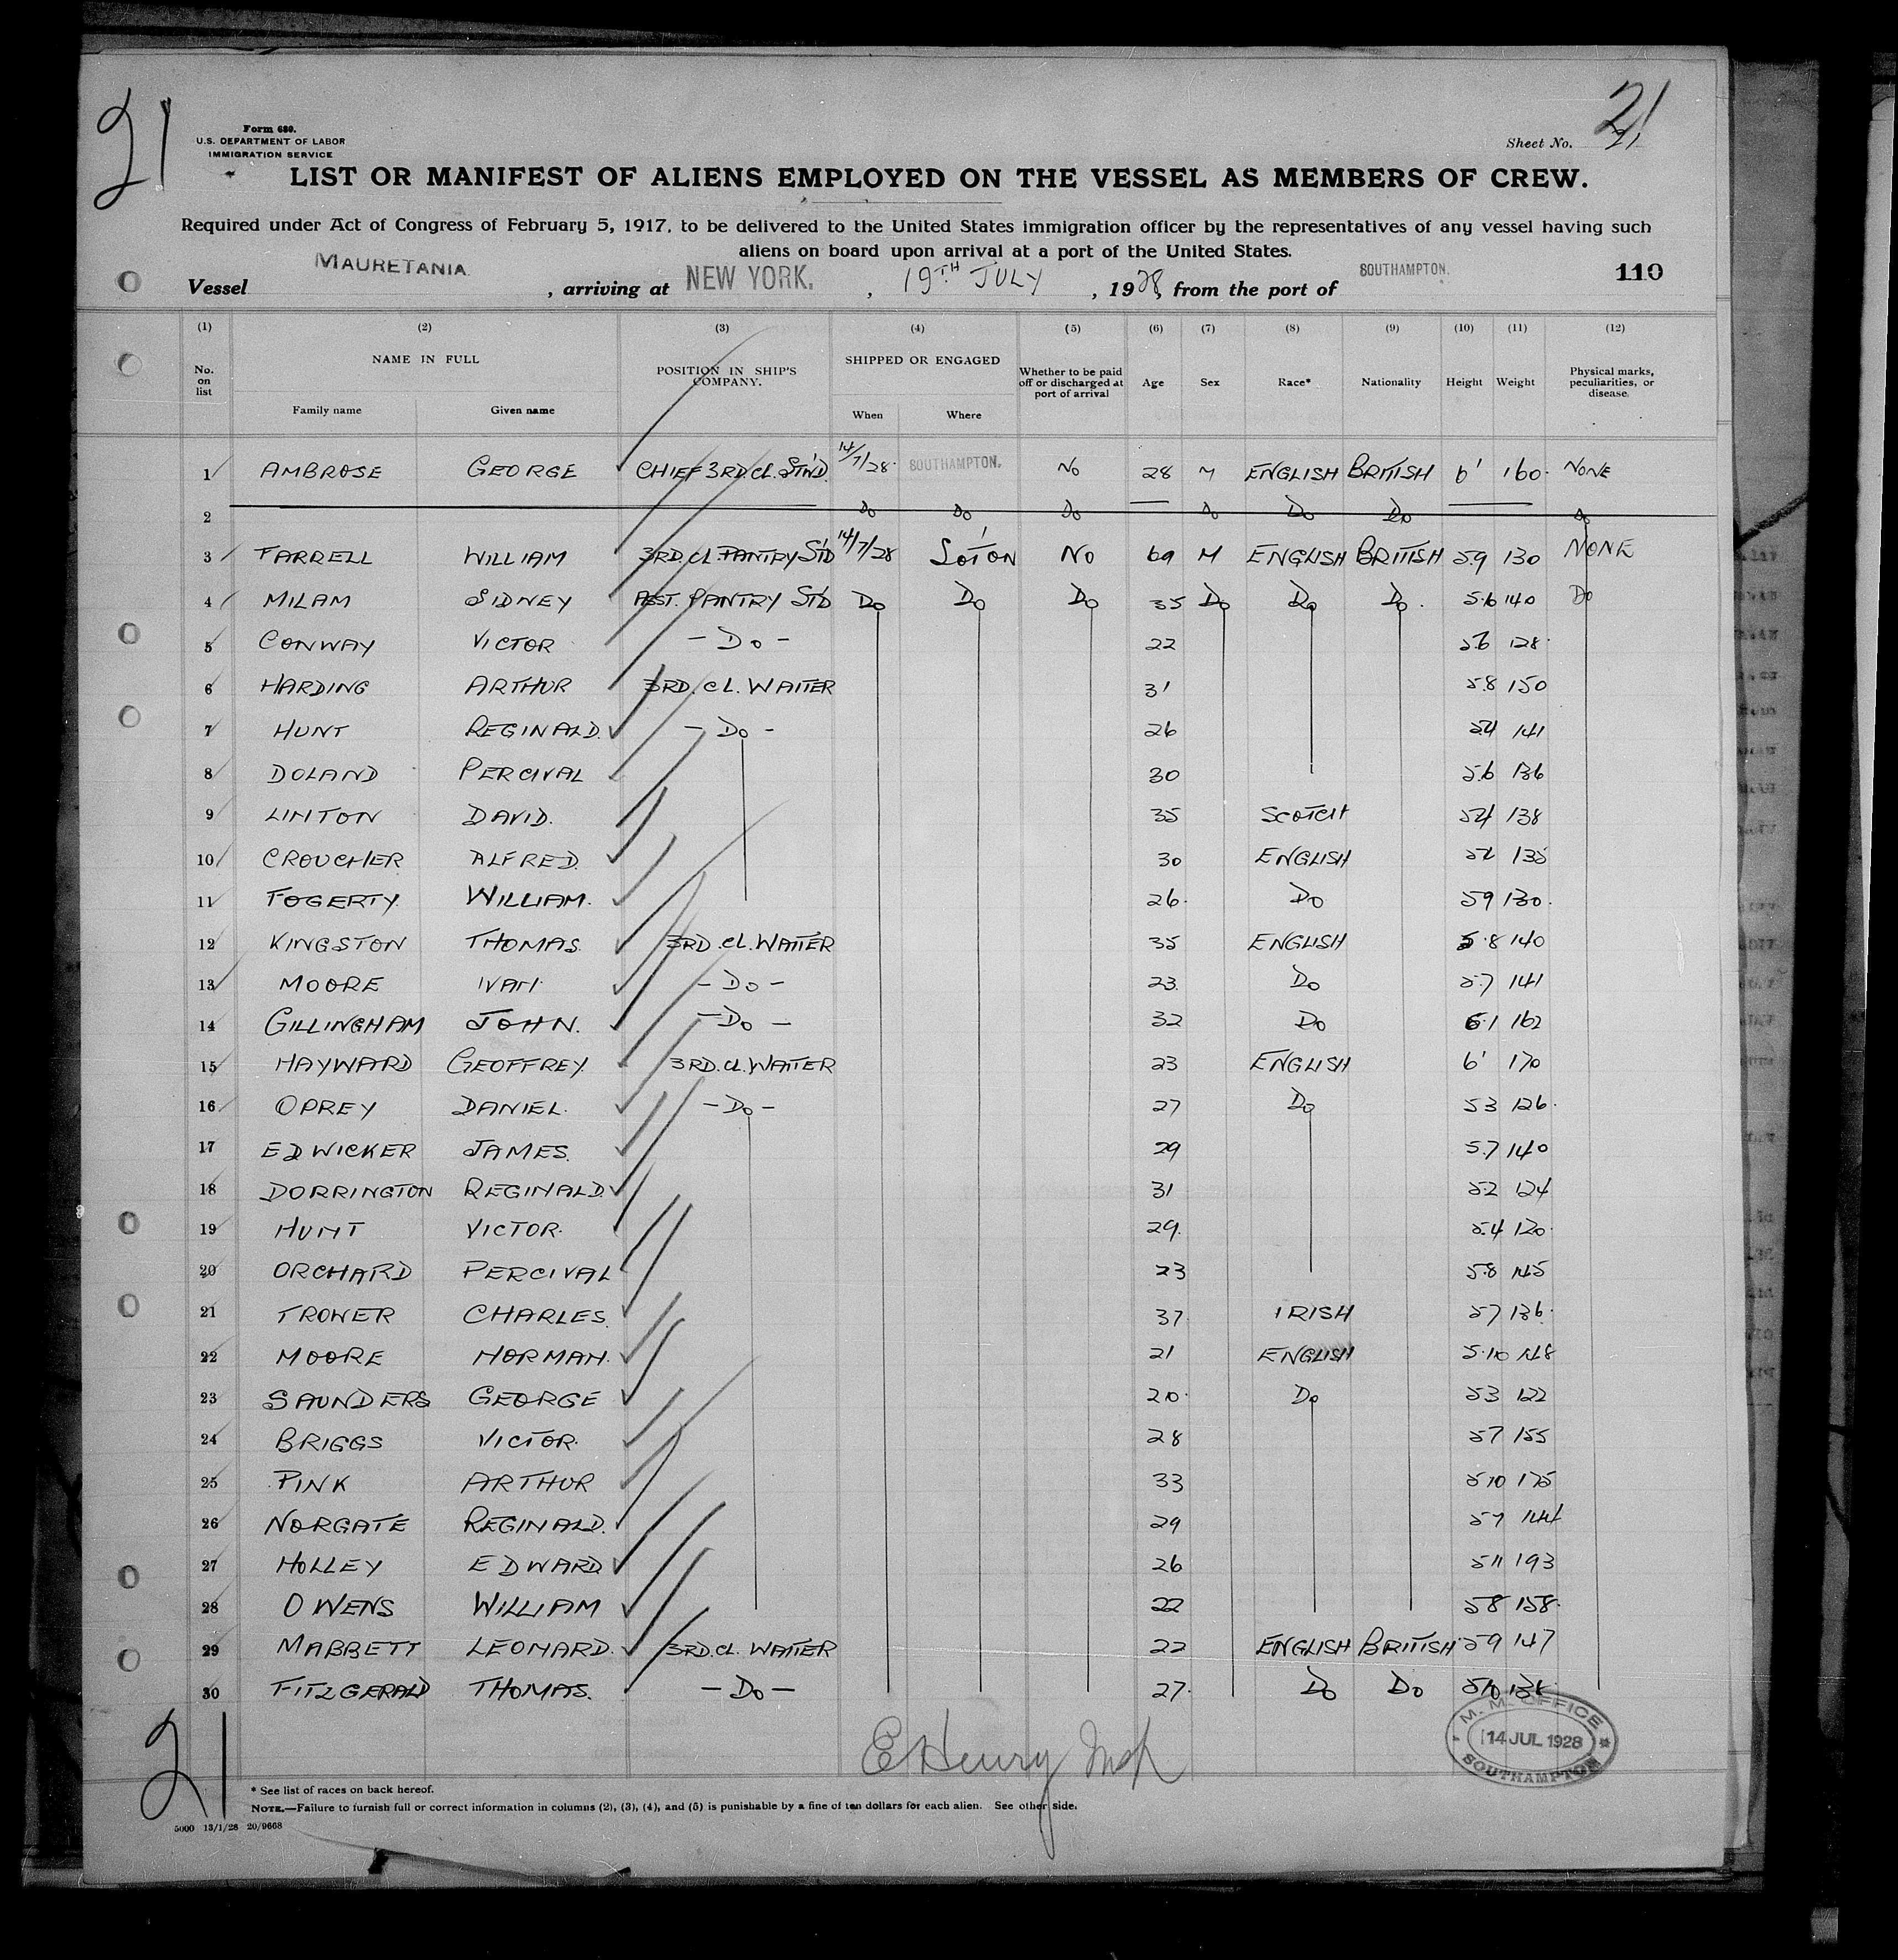 21
Form 680.
U.S. DEPARTMENT OF LABOR
IMMIGRATION SERVICE
Sheet No. 21
21
LIST OR MANIFEST OF ALIENS EMPLOYED ON THE VESSEL AS MEMBERS OF CREW.
Required under Act of Congress of February 5, 1917, to be delivered to the United States immigration officer by the representatives of any vessel having such
aliens on board upon arrival at a port of the United States.
Vessel MAURETANIA, arriving at NEW YORK., 19TH JULY, 1928, from the port of SOUTHAMPTON. 110
(1) (2) (3) (4) (5) (6) (7) (8) (9) (10) (11) (12)
No. on list NAME IN FULL POSITION IN SHIP'S COMPANY. SHIPPED OR ENGAGED Whether to be paid off or discharged at port of arrival Age Sex Race* Nationality Height Weight Physical marks, peculiarities, or disease
Family name Given name When Where
1 AMBROSE GEORGE CHIEF 3RD.CL.STWD. 14/7/28 SOUTHAMPTON. NO 28 M ENGLISH BRITISH 6' 160 NONE
2 Do Do Do Do Do Do Do
3 FARRELL WILLIAM 3RD.CL PANTRY STD 14/7/28 S'OTON NO 69 M ENGLISH BRITISH 5.9 130 NONE
4 MILAM SIDNEY ASST. PANTRY STD Do Do Do 35 Do Do Do. 5.6 140 Do
5 CONWAY VICTOR - Do - 22 5.6 128
6 HARDING ARTHUR 3RD. CL. WAITER 31 5.8 150
7 HUNT REGINALD. - Do - 26 54 141
8 DOLAND PERCIVAL 30 5.6 136
9 LINTON DAVID. 35 SCOTCH 54 138
10 CROUCHER ALFRED. 30 ENGLISH 135
11 FOGERTY WILLIAM. 26. Do 59 130.
12 KINGSTON THOMAS. 3RD.CL.WAITER 35 ENGLISH 5.8 140
13 MOORE IVAN - Do - 23. Do 5.7 141
14 GILLINGHAM JOHN. - Do - 32 Do 6.1 162
15 HAYWARD GEOFFREY 3RD.CL.WAITER 23 ENGLISH 6' 170
16 OPREY DANIEL. - Do - 27 Do 53 126.
17 EDWICKER JAMES. 29 5.7 140
18 DORRINGTON REGINALD. 31 5.2 124
19 HUNT VICTOR. 29. 5.4 120
20 ORCHARD PERCIVAL 23 5.8 145
21 TROWER CHARLES. 37. IRISH 57 136.
22 MOORE NORMAN. 21 ENGLISH 5.10 148
23 SAUNDERS GEORGE 20. Do 53 122
24 BRIGGS VICTOR. 28 57 155
25 PINK ARTHUR 33 5 10 175
26 NORGATE REGINALD. 29 57 144
27 HOLLEY EDWARD 26 5 11 193
28 OWENS WILLIAM 22 58 158.
29 MABBETT LEONARD. 3RD.CL. WAITER 22 ENGLISH BRITISH 59 147
30 FITZGERALD THOMAS. - Do - 27. Do Do 5/10
E Henry
M. M. OFFICE
14 JUL 1928
SOUTHAMPTON
21
* See list of races on back hereof.
NOTE.—Failure to furnish full or correct information in columns (2), (3), (4), and (5) is punishable by a fine of ten dollars for each alien. See other side.
5000 13/1/28 20/9668